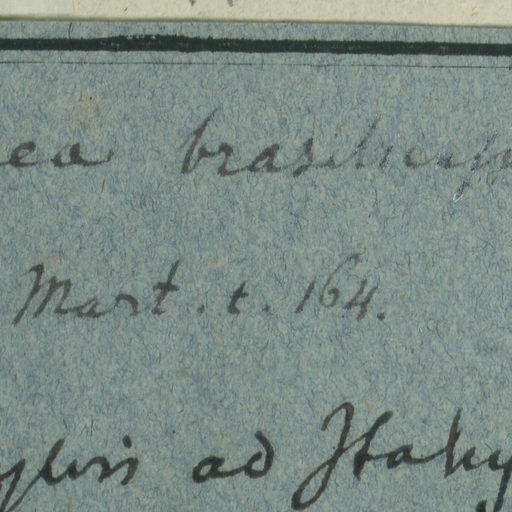 ea brasiliens
Mart. t. 164.
sylvis ad Itahy